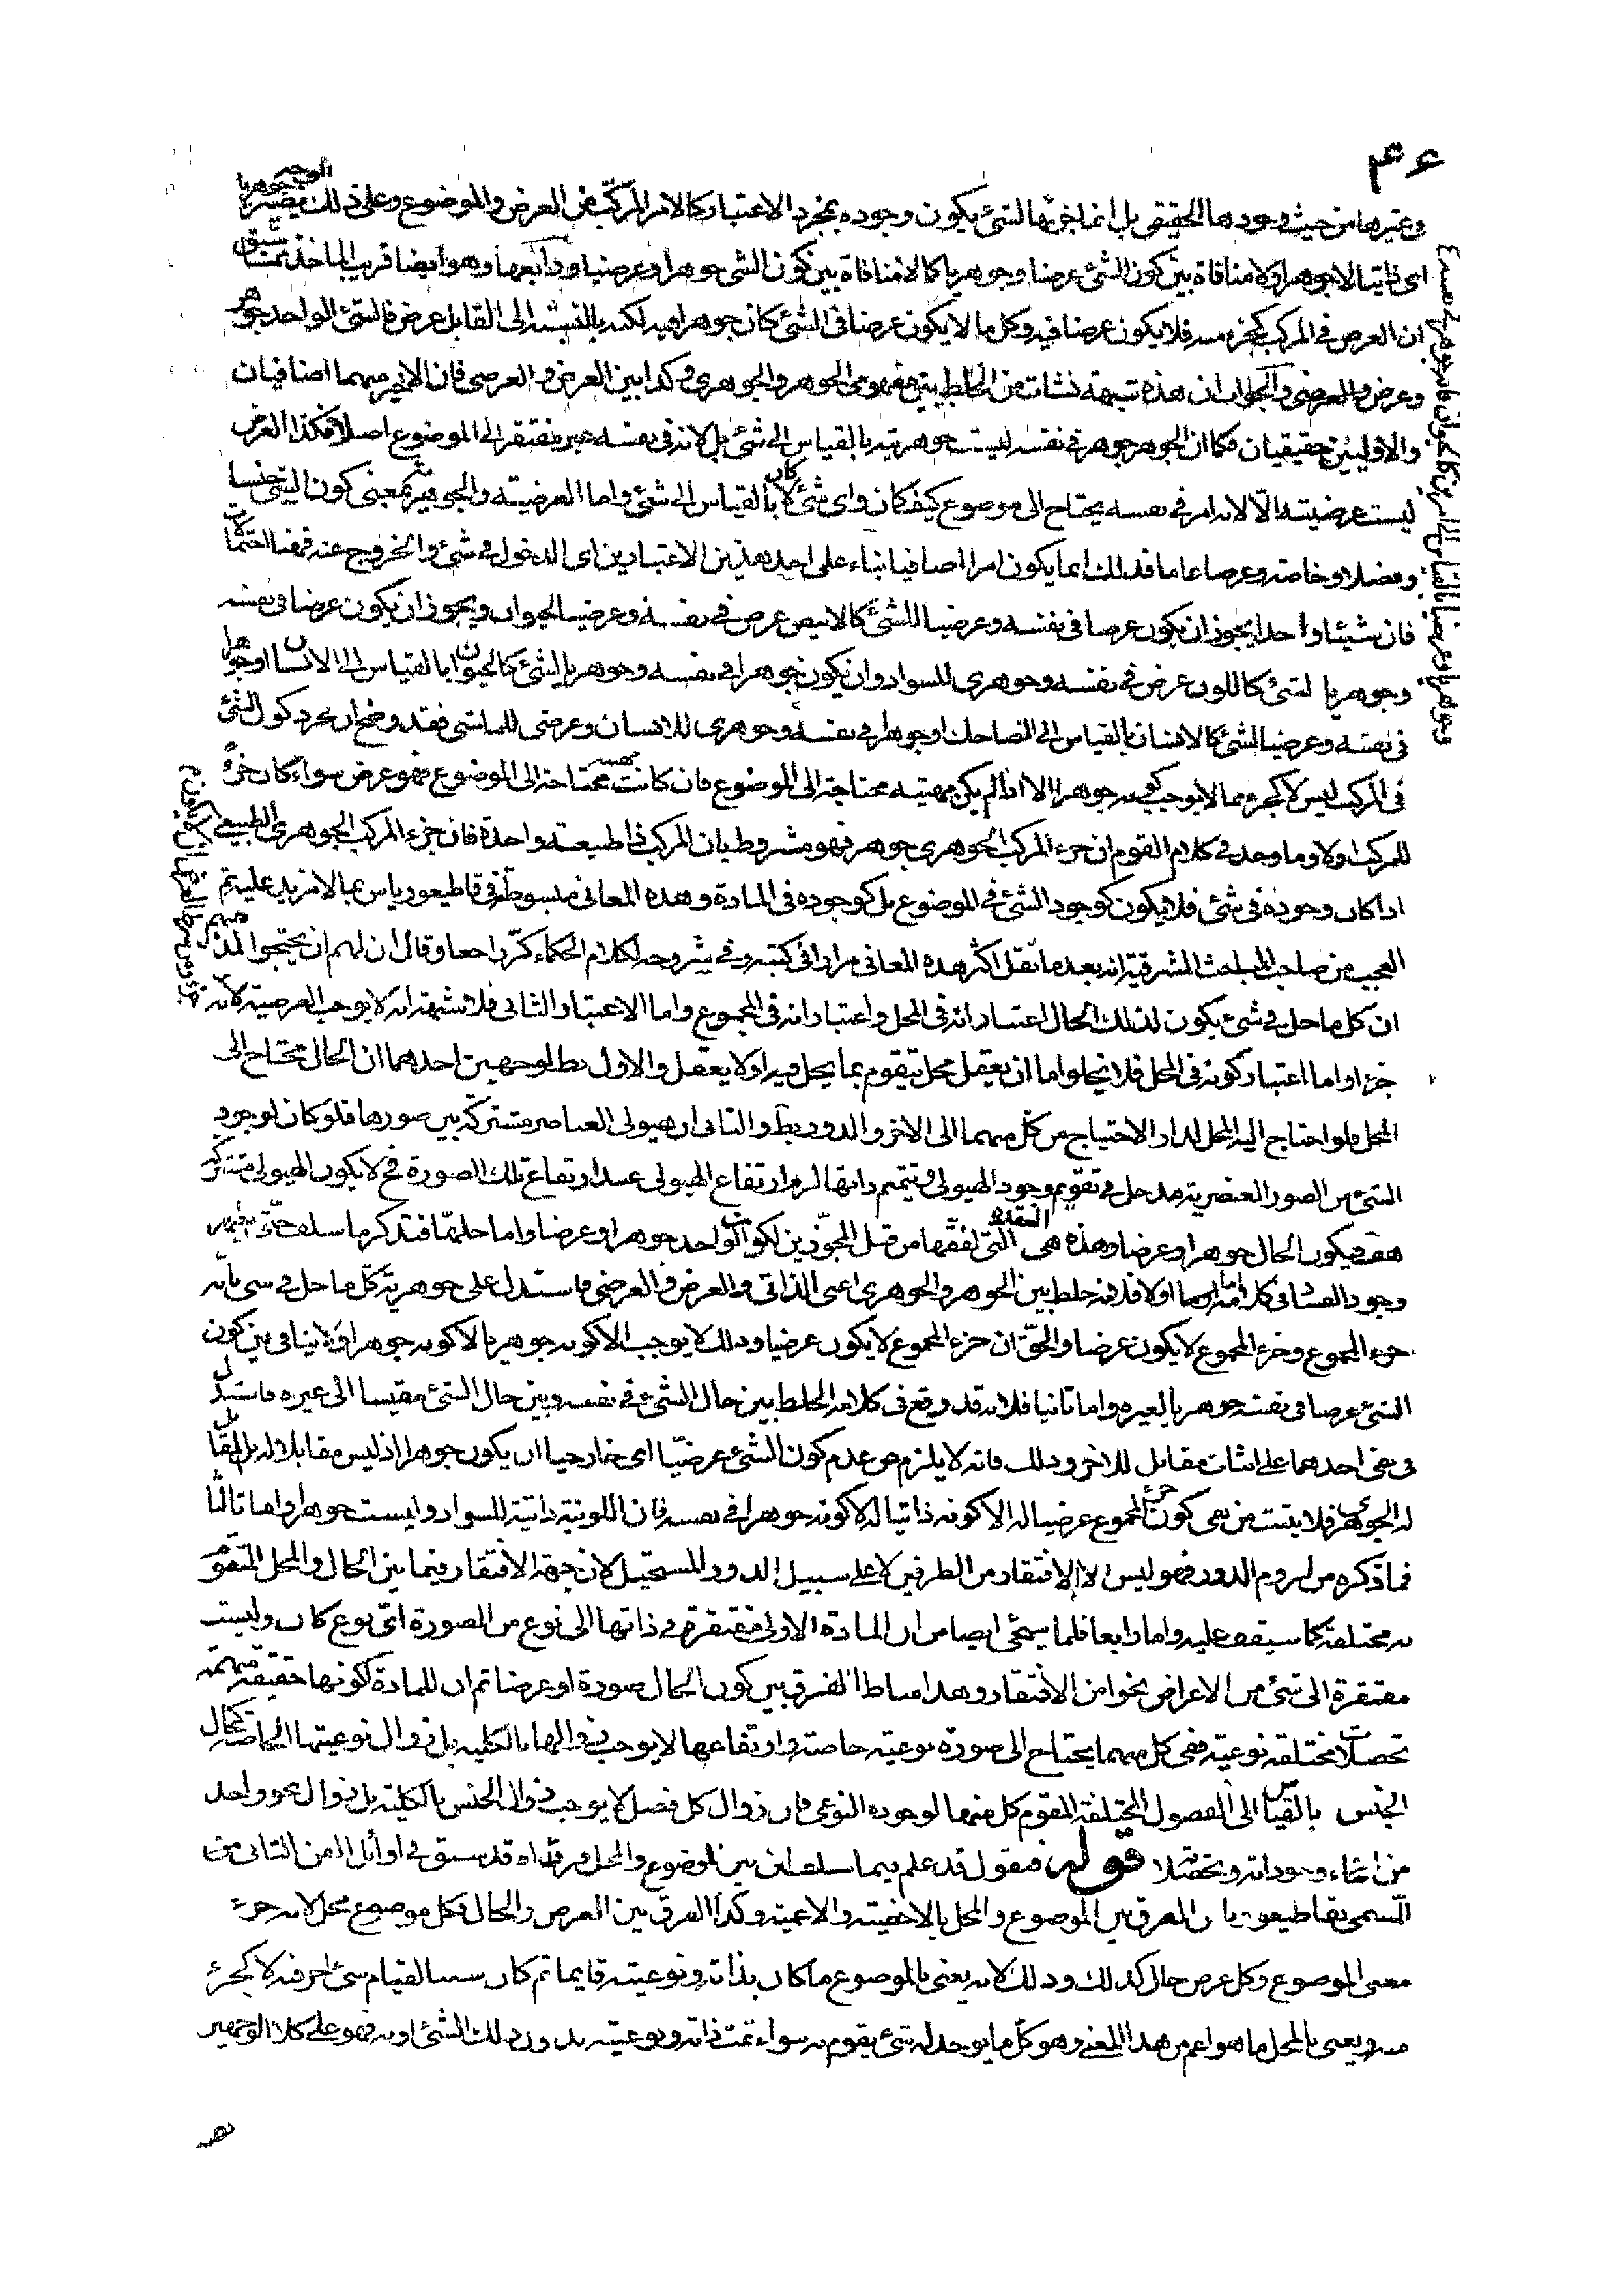 ۴۶
وغيرها من حيث وجودها الحقيقى بل انما اخرها لشئ يكون وجوده بمجرد الاعتبار كالامر المركب من العرض والموضوع وعلى ذلك يصير جوهريا
اى ذاتيا لا جوهرا ولا منافاة بين كون الشئ عرضا وجوهريا كما لا منافاة بين كون الشئ جوهرا وعرضيا ورابعها وهو ايضا قريب الماخذ مما سبق
ان العرض فى المركب كجزء منه فلا يكون عرضا فيه وكل ما لا يكون عرضا فى الشئ كان جوهرا فيه لكنه بالنسبة الى القابل عرض فالشئ الواحد جوهر
وعرض والجواب ان هذه شبهة نشأت من الخلط بين مفهومى الجوهر والجوهرى وكذا بين العرض والعرضى فان الاخير منهما اضافيان
والاوليين حقيقيان فكما ان الجوهر جوهر فى نفسه ليست جوهريته بالقياس الى شئ بل لانه فى نفسه غير مفتقر الى الموضوع اصلا فكذا العرض
ليست عرضيته الا لانه امر فى نفسه يحتاج الى موضوع كيف كان واى شئ كان لا بالقياس الى شئ واما العرضية والجوهرية بمعنى كون الشئ جنسا
وفصلا او خاصة وعرضا عاما فذلك انما يكون امرا اضافيا بناء على احد هذين الاعتبارين اى الدخول فى شئ والخروج عنه فهنا احتمالات
فان شيئا واحدا يجوز ان يكون عرضا فى نفسه وعرضيا للشئ كالابيض عرض فى نفسه وعرضى للحيوان ويجوز ان يكون عرضا فى نفسه
وجوهريا لشئ كاللون عرض فى نفسه وجوهرى للسواد وان يكون جوهرا فى نفسه وجوهريا لشئ كالحيوان بالقياس الى الانسان او جوهرا
فى نفسه وعرضيا لشئ كالانسان بالقياس الى الضاحك او جوهرا فى نفسه وجوهرى للانسان وعرضى للماشى فقد وضح ان مجرد كون الشئ
فى المركب ليس لا كجزء مما لا يوجب كونه جوهرا الا اذا لم يكن مهيته محتاجة الى الموضوع فان كانت مهيته محتاجة الى الموضوع فهو عرض سواء كان جزء
للمركب اولا وما وجد فى كلام القوم ان جزء المركب الجوهرى جوهر فهو مشروط بان المركب ذا طبيعة واحدة فان جزء المركب الجوهرى الطبيعى
اذا كان وجوده فى شئ فلا يكون كوجود الشئ فى الموضوع بل كوجوده فى المادة وهذه المعانى مبسوطة فى قاطيغورياس بما لا مزيد عليه ثم
العجب من صاحب المباحث المشرقية انه بعد ما نقل اكثر هذه المعانى مرارا فى كتبه وفى شروحه لكلام الحكماء كر راجعا وقال ان لهم ان يحتجوا لمذهبهم
ان كل ما حل فى شئ يكون لذلك الحال اعتبار انه فى المحل واعتبار انه فى المجموع واما الاعتبار الثانى فلا شبهة انه لا يوجب العرضية لانه
جزء او اما اعتبار كونه فى المحل فلا يخلو اما ان يعقل محل يتقوم بما يحل فيه او لا يعقل والاول بط لوجهين احدهما ان الحال محتاج الى
المحل فلو احتاج اليه المحل لدار الاحتياج من كل منهما الى الاخر والدور بط والثانى ان هيولى العناصر مشتركة بين صورها فلو كان لوجود
الشئ من الصور العنصرية مدخل فى تقويم وجود الهيولى وتتميم ذاتها لزم ارتفاع الهيولى عند ارتفاع تلك الصورة فح لا يكون الهيولى مشتركة
هف فيكون الحال جوهرا وعرضا وهذه هى العقدة التى لفقها من قبل المجوزين لكون الواحد جوهرا وعرضا واما حلها فتذكر ما سلف
وجود الفساد فى كلامه اما اولا فلانه خلط بين الجوهر والجوهرى اعنى الذاتى والعرض والعرضى فاستدل على جوهرية كل ما حل فى شئ بانه
جزء المجموع وجزء المجموع لا يكون عرضا والحق ان جزء المجموع لا يكون عرضيا وذلك لا يوجب الا كونه جوهريا لا كونه جوهرا ولا ينافى بين كون
الشئ عرضا فى نفسه جوهريا لغيره واما ثانيا فلانه قد وقع فى كلامه الخلط بين حال الشئ فى نفسه وبين حال الشئ مقيسا الى غيره فاستدل
فى نفى احدهما على اثبات مقابل للاخر وذلك فانه لا يلزم من عدم كون الشئ عرضيا اى خارجيا ان يكون جوهرا اذ ليس مقابلا له بل المقابل
له الجوهرى فلا يثبت من نفى كون جزء المجموع عرضيا له الا كونه ذاتيا له لا كونه جوهرا فى نفسه فان اللونية ذاتية للسواد وليست جوهرا واما ثالثا
فما ذكره من لزوم الدور فهو ليس الا الافتقار من الطرفين لا على سبيل الدور المستحيل لان جهة الافتقار فيما بين الحال والمحل المتقوم
به مختلفة كما سيقف عليه واما رابعا فلما سيجئ ايضا من ان المادة الاولى مفتقرة فى ذاتها الى نوع من الصورة اى نوع كان وليست
مفتقرة الى شئ من الاعراض نحوا من الافتقار وهذا مناط الفرق بين كون الحال صورة او عرضا ثم ان للمادة لكونها حقيقة مبهمة
تحصلات مختلفة نوعية ففى كل منها يحتاج الى صورة نوعية خاصة وارتفاعها لا يوجب زوالها بالكلية بل زوال نوعيتها الخاصة كحال
الجنس بالقياس الى الفصول المختلفة المقوم كل منها لوجوده النوعى فان زوال كل فصل لا يوجب زوال الجنس بالكلية بل زوال نحو واحد
من انحاء وجوداته وتحصلاته قوله فنقول قد علم فيما سلف ان بين الموضوع والمحل فرقا اه قد سبق فى اوائل الفن الثانى من
المسمى بقاطيغورياس الفرق بين الموضوع والمحل بالاخصية والاعمية وكذا الفرق بين العرض والحال فكل موضوع محل لانه جزء
معنى الموضوع وكل عرض حال كذلك وذلك لانه يعنى بالموضوع ما كان بذاته ونوعيته قايما ثم كان سببا لقيام شئ اخر فيه لا كجزء
منه ويعنى بالمحل ما هو اعم من هذا المعنى وهو كل ما يوجد له شئ يقوم به سواء تمت ذاته ونوعيته بدون ذلك الشئ او به فهو على كلا الوجهين